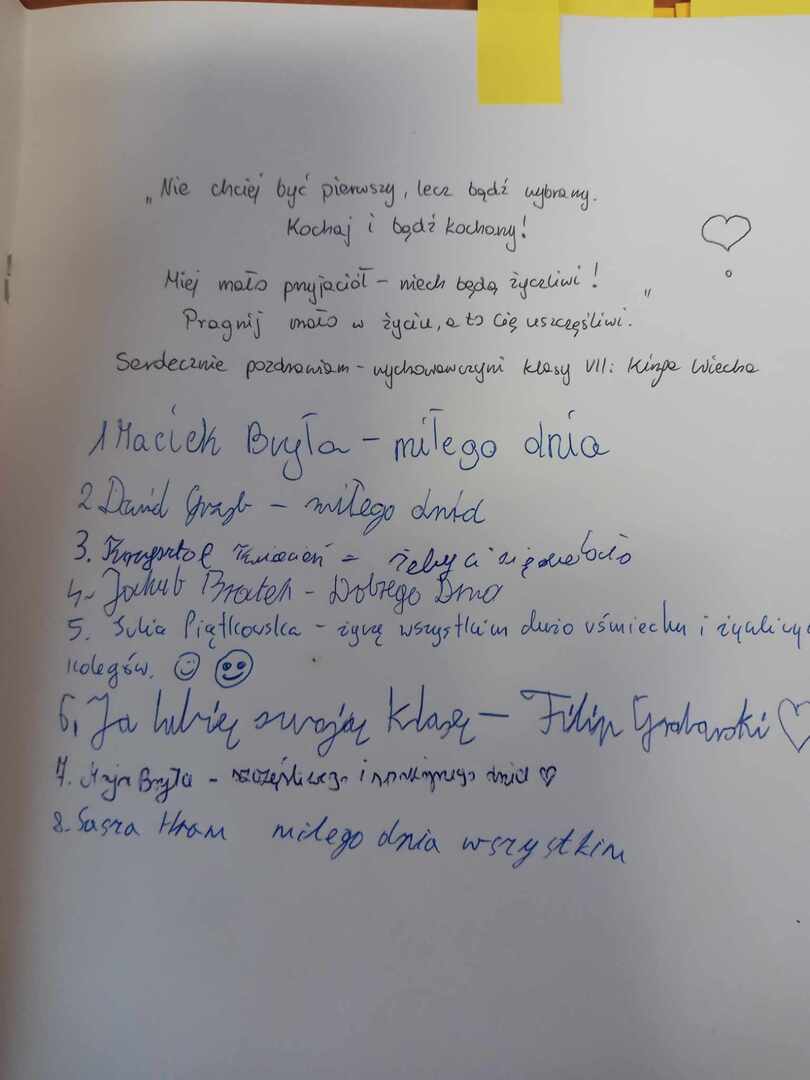 „Nie chciej być pierwszy, lecz bądź wybrany.
Kochaj i bądź kochany!
Miej mało przyjaciół – niech będą życzliwi!
Pragnij mało w życiu, a to Cię uszczęśliwi."
Serdecznie pozdrawiam – wychowawczyni klasy VII: Kinga Wiecha
1 Maciek Bryła – miłego dnia
2 Dawid – miłego dnia
3. Krzysztof Kwiecień – żeby ci się
4. Jakub Bratek – Dobrego Dnia
5. Julia Piątkowska – życzę wszystkim dużo uśmiechu i
kolegów.
6. Ja lubię swoją klasę – Filip Grabarski
7. Maja Bryła – szczęśliwego i dnia
8. Sasza Hram miłego dnia wszystkim